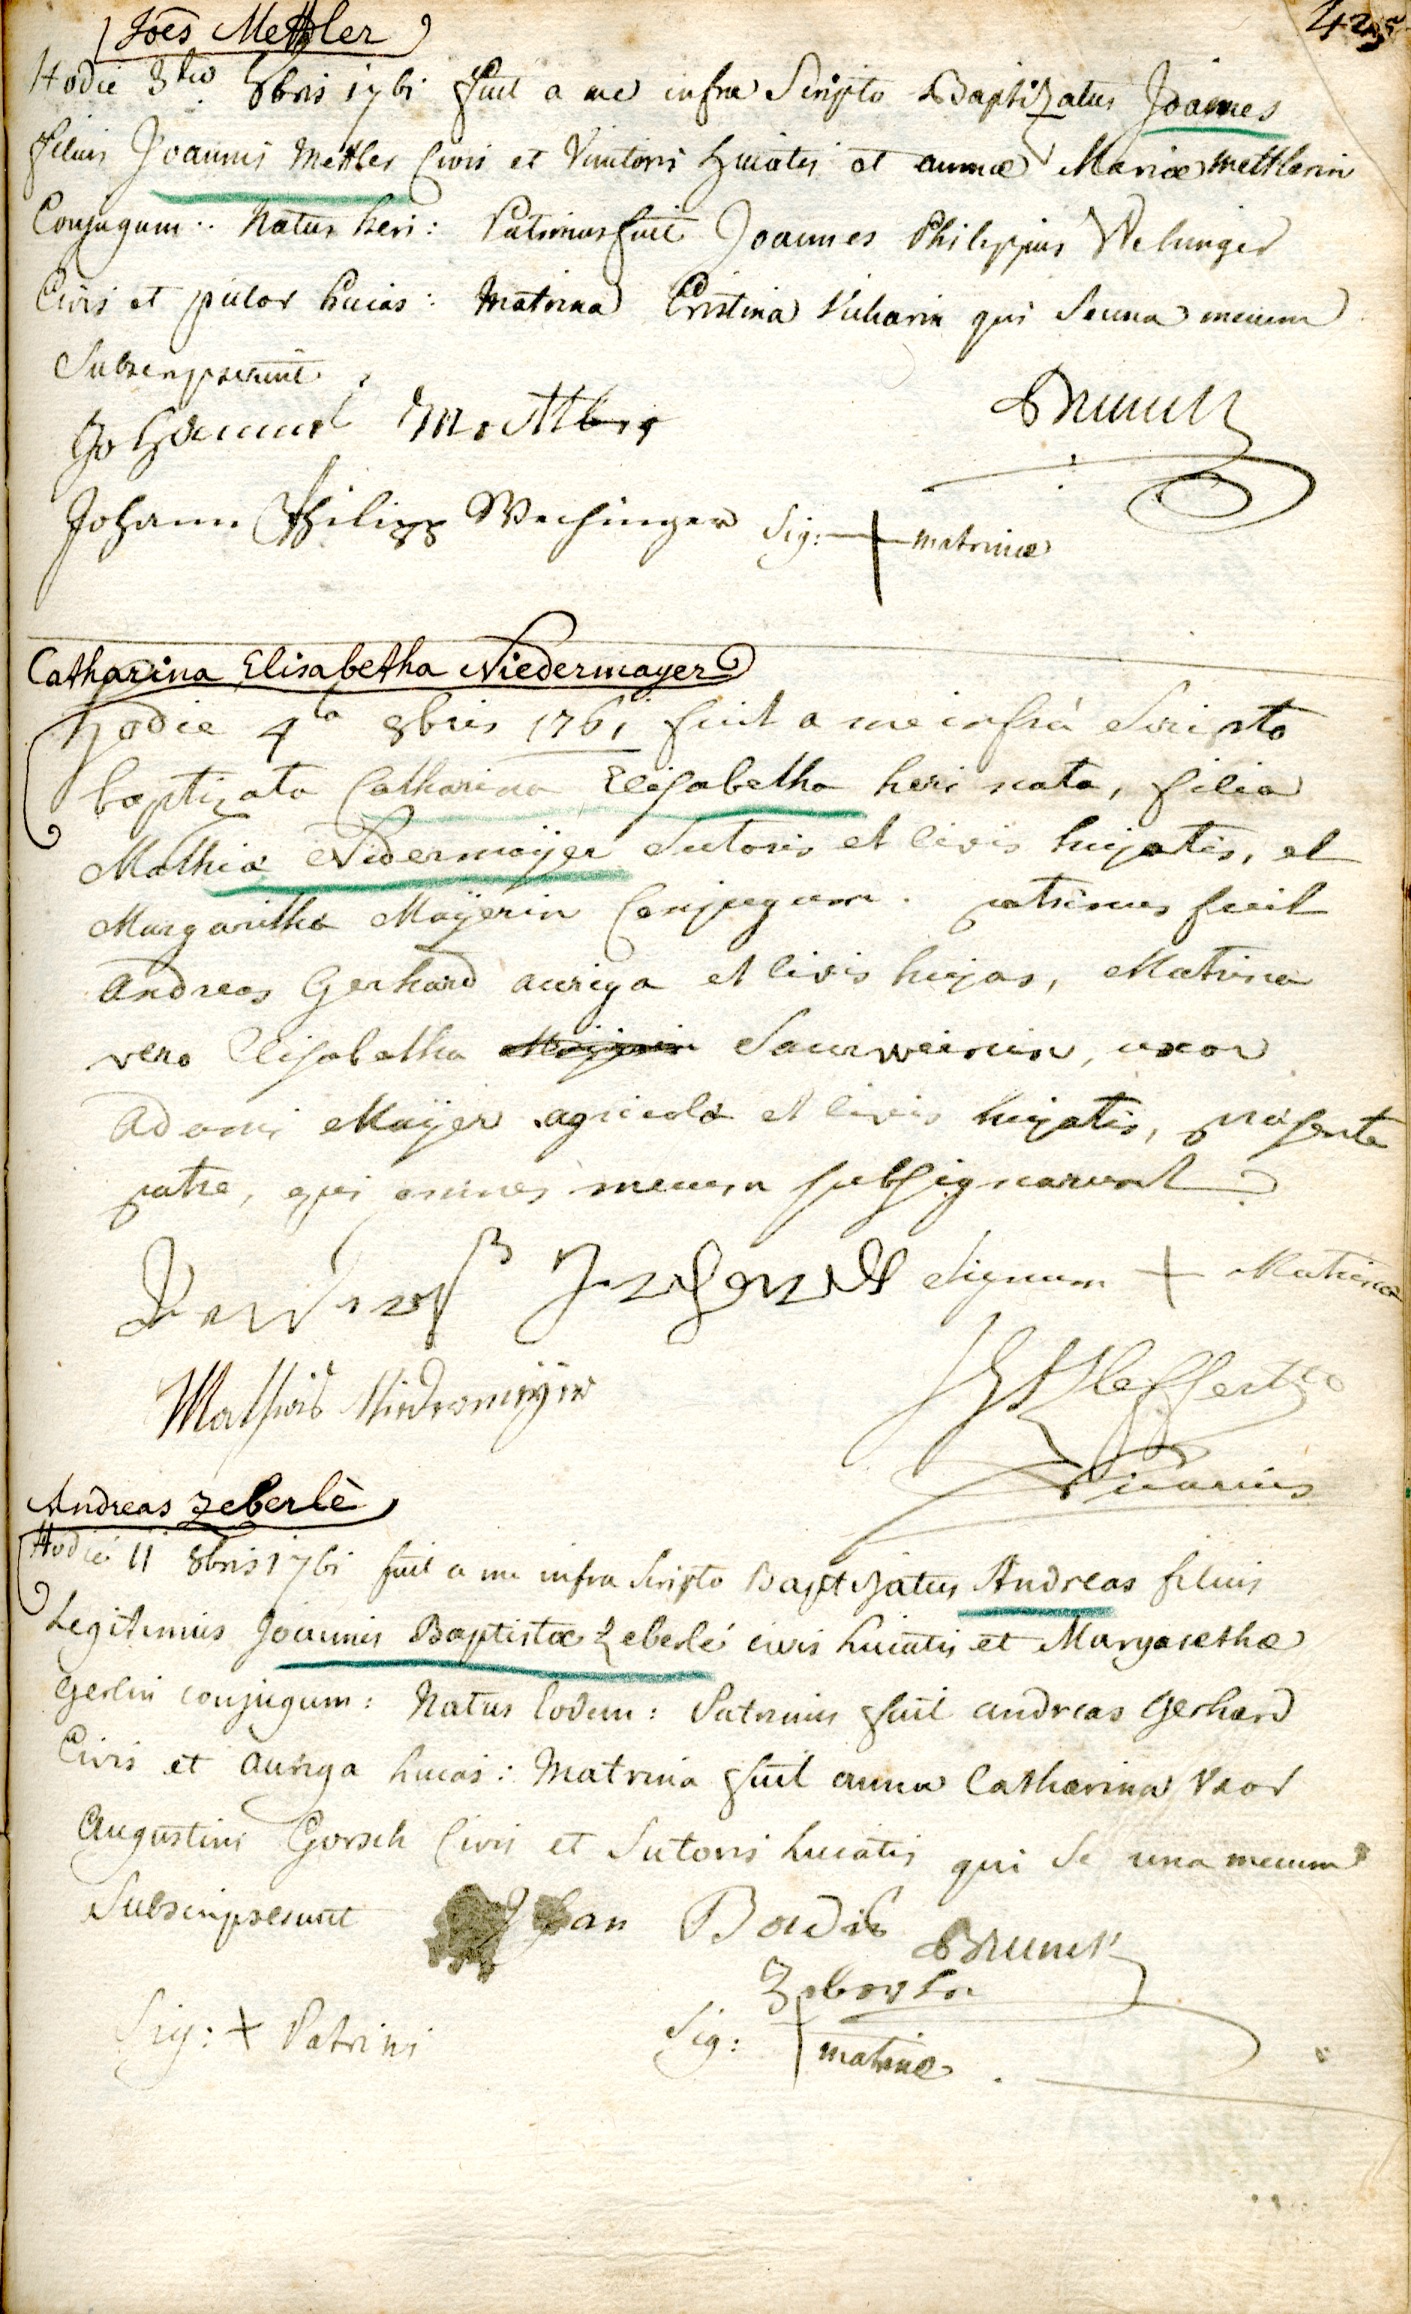 Joēs Mettler
425
Hodie 3tio 8bris 1761 fuit a me infra Scripto Baptizatus Joannes
filius Joannis Mettler Civis et Vinitoris huiatis et annæ Mariæ Mettlerin
Conjugum: Natus heri: Patrinus fuit Joannes Philippus
Civis et huias: Matrina Cristina qui se una mecum
Subscripserunt
Johannes Mettler
Brunck
Johann Philipp Wechinger Sig: + matrinæ
Catharina Elisabetha Niedermayer
hodie 4ta 8bris 1761 fuit a me infrà Scripto
baptizata Catharina Elisabetha heri nata, filia
Mathiæ Nidermaÿer Sutoris et Civis hujatis, et
Margaritha Maÿerin Conjugum. patrinus fuit
Andreas Gerhard auriga et Civis hujas, Matrina
vero Elisabetha Saurweinin, uxor
Adami Maÿer agricolæ et Civis hujatis, præsente
patre, qui omnes mecum subsignarunt
Signum + Matrinæ
Mathias Niedermeÿer
Vicarius
Andreas Zeberlè
Hodie 11 8bris 1761 fuit a me infra Scripto Baptizatus Andreas filius
Legitimus Joannis Baptistæ Zeberlé civis huiatis et Margarethæ
Gerlin conjugum: Natus Eodem: Patrinus fuit andreas Gerhard
Civis et auriga huias: Matrina fuit anna Catharina Uxor
Augustini Gorsch Civis et Sutoris huiatis qui se una mecum
Subscripserunt Johan Badist Brunck
Zeberle
Sig: + Patrini Sig: + matrinæ